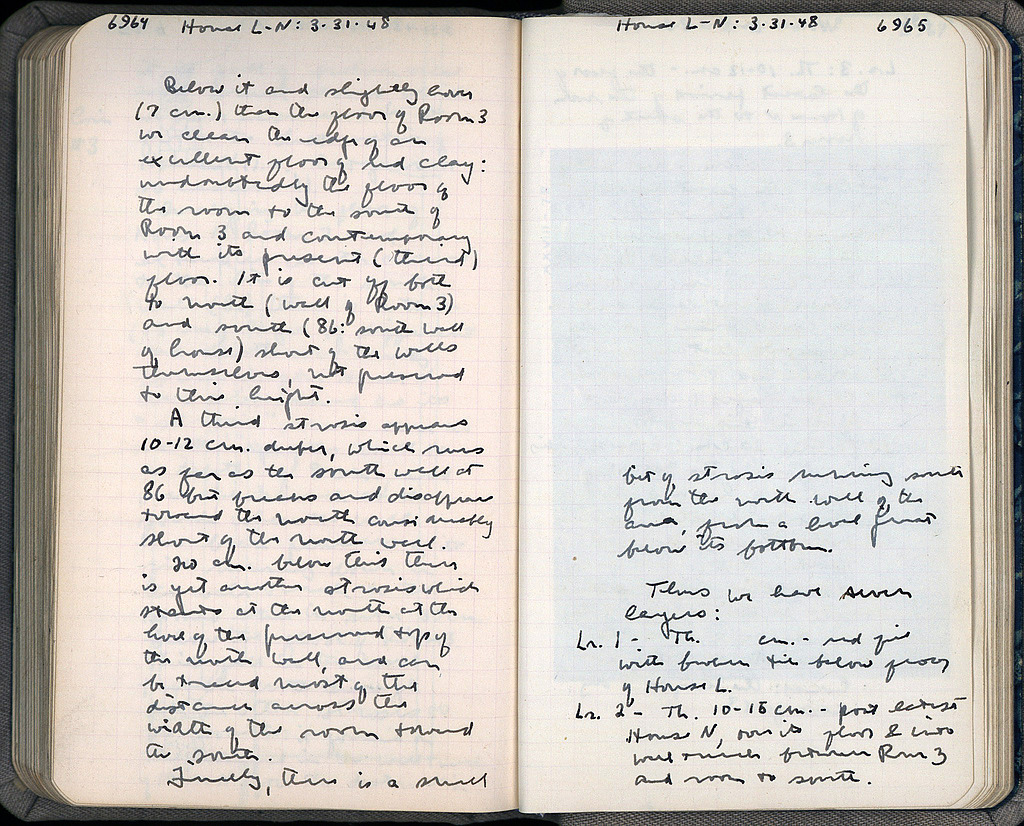 6964 House L-N: 3-31-48
Below it and slightly lower
(7 cm.) than the floor of Room 3
we clean the edge of an
excellent floor of red clay:
undoubtedly the floor of
the room to the south of
Room 3 and contemporary
with its present (third)
floor. It is cut off both
to north (wall of Room 3)
and south (86: south wall
of house) short of the walls
themselves, not preserved
to this height.
A third strosis appears
10-12 cm. deeper, which runs
as far as the south wall at
86 but breaks and disappears
toward the north considerably
short of the north wall.
20 cm. below this there
is yet another strosis which
starts at the north at the
level of the preserved top of
the north wall, and can
be traced most of the
distance across the
width of the room toward
the south.
Finally, there is a small
House L-N: 3-31-48 6965
bit of strosis running south
from the north wall of the
area, from a level just
below its bottom.
Thus we have seven
layers:
Lr. 1 - Th. cm. - red fill
with broken tile below floor
of House L.
Lr. 2 - Th. 10-15 cm. - post latest
House N, over its floor & into
wall trench between Room 3
and room to south.